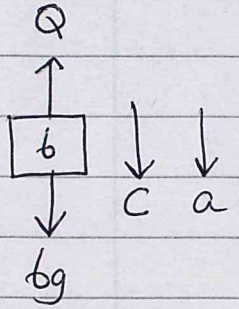 Q
6
C a
6g